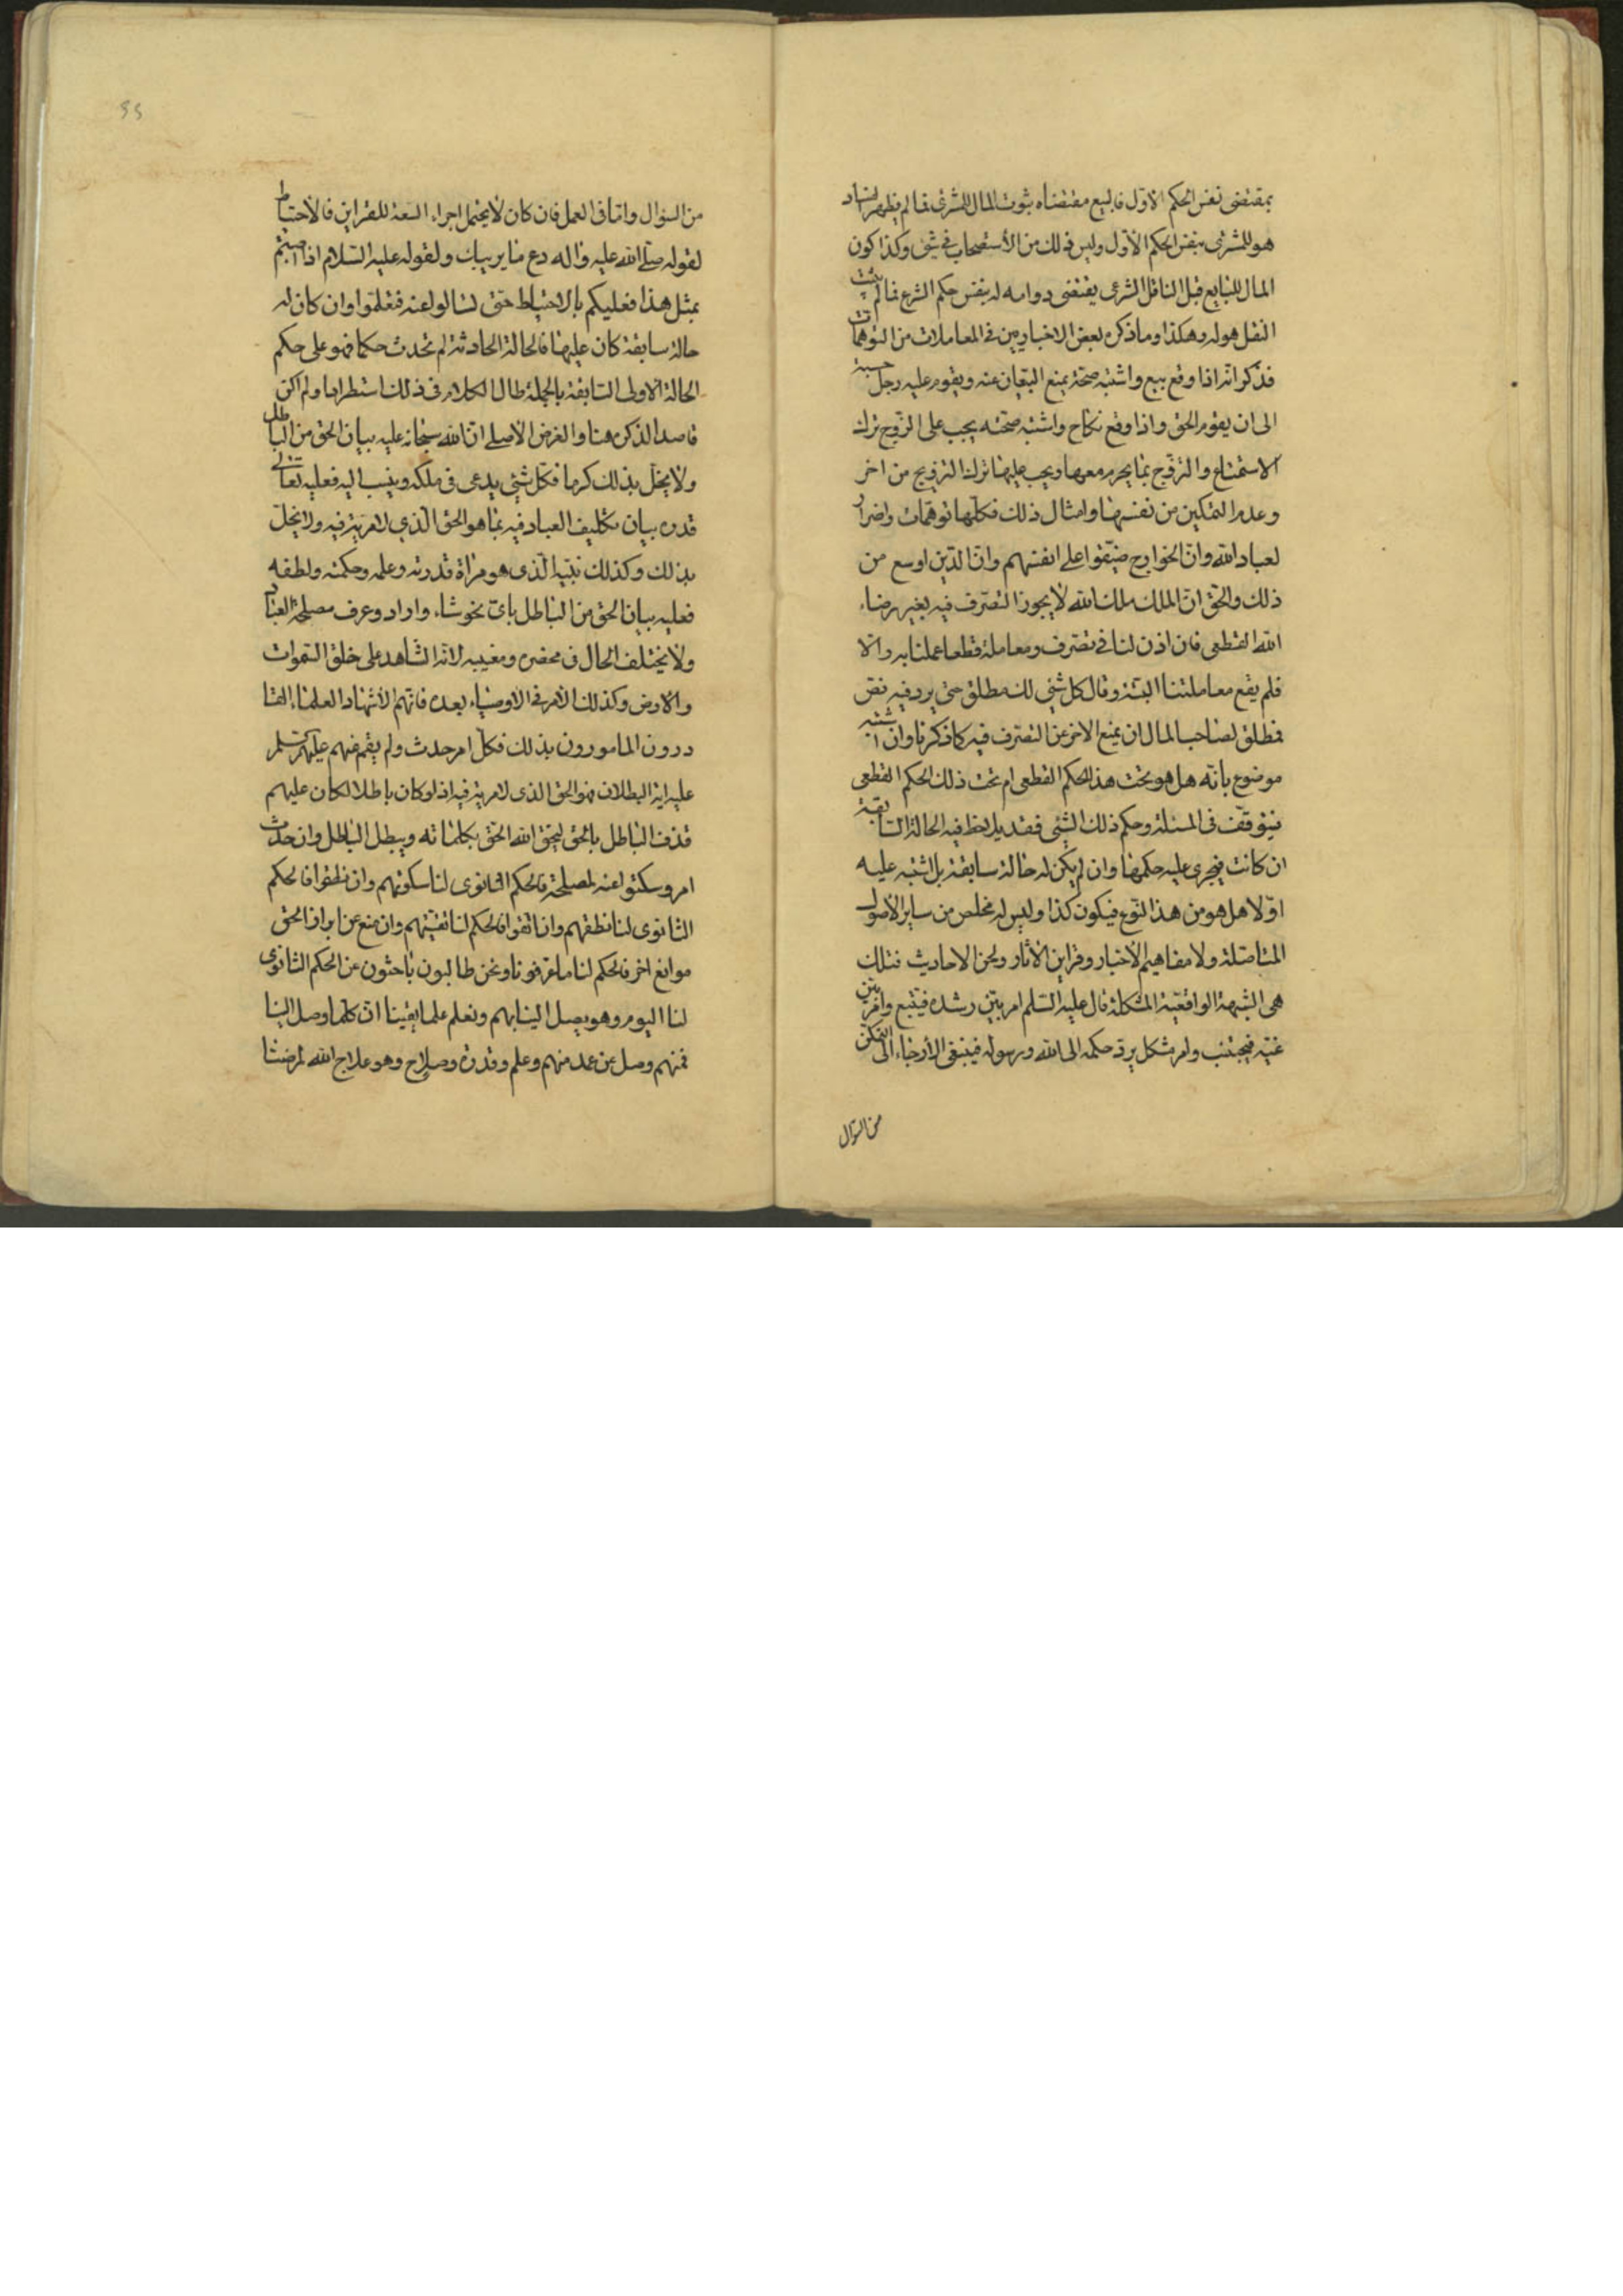 بمقتضى نفس الحكم الاول فالبيع مقتضاه ثبوت المال للمشترى فما لم يظهر الفساد
هو للمشترى بنفس الحكم الاول وليس ذلك من الأستصحاب فى شئ وكذا كون
المال للبايع قبل الناقل الشرعى يقتضى دوامه له بنفس حكم الشرع فما لم يثبت
النقل هو له وهكذا وما ذكره بعض الاخباريين فى المعاملات من التوهمات
فذكر انه اذا وقع بيع واشتبه صحته يمنع البيعان عنه ويقوم عليه رجل حسبة
الى ان يقوم الحق واذا وقع نكاح واشتبه صحته يجب على الزوج ترك
الاستمتاع والتزويج بما يحرم معها ويجب عليها ترك التزويج من اخر
وعدم التمكين من نفسها وامثال ذلك فكلها توهمات واضرار
لعباد الله وان الخوارج ضيقوا على انفسهم وان الدين اوسع من
ذلك والحق ان الملك ملك الله لا يجوز التصرف فيه بغير رضاء
الله القطعى فان اذن لنا فى تصرف ومعاملة قطعا عملنا به والا
فلم يقع معاملتنا البتة وقال كل شئ لك مطلق حتى يرد فيه نص
فطلق لصاحب المال ان يمنع الاخر عن التصرف فيه كما ذكرنا وان اشتبه
موضوع بانه هل هو تحت هذا الحكم القطعى ام تحت ذلك الحكم القطعى
فيتوقف فى المسئلة وحكم ذلك الشئ فقد يلاحظ فيه الحالة السابقة
ان كانت فيجرى عليه حكمها وان لم يكن له حالة سابقة بل اشتبه عليه
اولا هل هو من هذا النوع فيكون كذا وليس له مخلص من ساير الأصول
المتاصلة ولا مفاهيم الأخبار وقراين الأثار ولحن الاحاديث فتلك
هى الشبهة الواقعية المشكلة قال عليه السلم امر بين رشده فيتبع وامر بين
غيه فيجتنب وامر مشكل يرد حكمه الى الله ورسوله فينبغى الأرجاء الى التمكن
من السؤال
من السؤال واما فى العمل فان كان لا يحتمل اجراء السعة للقراين فالأحتياط
لقوله صلى الله عليه واله دع ما يريبك ولقوله عليه السلام اذا اصبتم
بمثل هذا فعليكم بالاحتياط حتى تسالوا عنه فتعلموا وان كان له
حالة سابقة كان عليها فالحالة الحادثة لم تحدث حكما فهو على حكم
الحالة الاولى السابقة بالجملة طال الكلام فى ذلك استطرادا ولم اكن
قاصد الذكره هنا والغرض الأصلى ان الله سبحانه عليه بيان الحق من الباطل
ولا يخل بذلك كرما فكل شئ يدعى فى ملكه وينسب اليه فعليه تعالى
قدره بيان تكليف العباد فيه بما هو الحق الذي لا مرية فيه ولا يخل
بذلك وكذلك نبيه الذى هو مراة قدرته وعلمه وحكمته ولطفه
فعليه بيان الحق من الباطل باى نحو شاء واراد وعرف مصلحة العباد
ولا يختلف الحال فى محضره ومغيبه لانه الشاهد على خلق السموات
والارض وكذلك الأمر فى الاوصياء بعده فانهم الأشهاد العلماء القا
درون المامورون بذلك فكل امر حدث ولم يقم منهم عليهم سلم
عليه اية البطلان فهو الحق الذى لا مرية فيه اذ لو كان باطلا لكان عليهم
قذف الباطل بالحق ليحق الله الحق بكلماته ويبطل الباطل وان حدث
امر وسكتوا عنه لمصلحة فالحكم الثانوى لنا سكوتهم وان نطقوا فالحكم
الثانوى لنا نطقهم وان اتقوا فالحكم لنا تقيتهم وان منع عن ابراز الحق
موانع اخر فالحكم لنا ما عرفونا ونحن طالبون باحثون عن الحكم الثانوى
لنا اليوم وهو يصل الينا بهم ونعلم علما يقينا ان كلما وصل الينا
فمنهم وصل عن عمد منهم وعلم وقدرة وصلاح وهو علاج الله لمرضنا